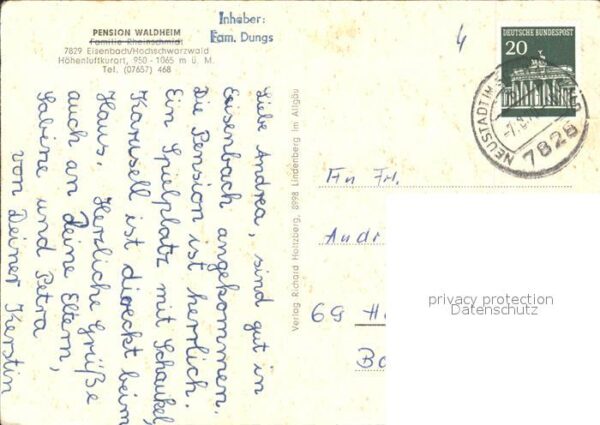 PENSION WALDHEIM
Familie Rheinschmidt
7829 Eisenbach/Hochschwarzwald
Höhenluftkurort, 950 - 1065 m ü. M.
Tel. (07657) 468
Inhaber:
Fam. Dungs
4
DEUTSCHE BUNDESPOST
20
NEUSTADT IM
7820
Liebe Andrea, sind gut in
Eisenbach angekommen.
Die Pension ist herrlich.
Ein Spielplatz mit Schaukel,
Karusell ist direckt beim
Haus. Herzliche Grüße
auch an Deine Eltern,
Sabine und Petra
von Deiner Kerstin
Verlag Richard Holtzberg, 8998 Lindenberg im Allgäu
An Frl.
Andr
69 H
Ba
privacy protection
Datenschutz